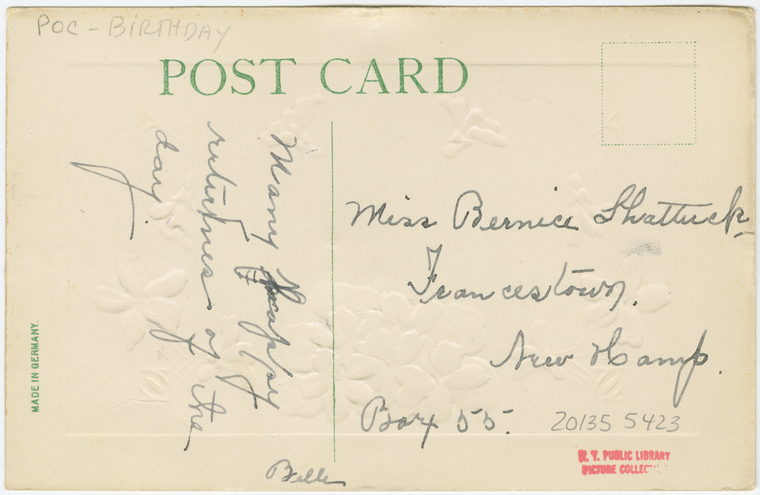 POC - BIRTHDAY
POST CARD
Many happy
returnes of the
day.
Belle
Miss Bernice Shattuck
Francestown,
New Hamp.
Box 55.
20135 5423
N. Y. PUBLIC LIBRARY
PICTURE COLLEC
MADE IN GERMANY.